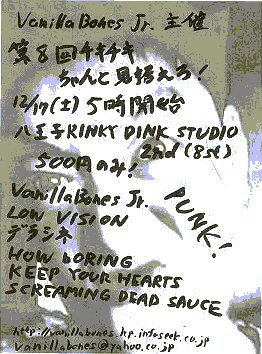 VanillaBones Jr. 主催
第8回チキチキ
ちゃんと見据えろ!
12/17(土) 5時開始
八王子KINKY DINK STUDIO
2nd (8st)
500円のみ!
VanillaBones Jr.
LOW VISION
デラシネ
HOW BORING
KEEP YOUR HEARTS
SCREAMING DEAD SAUCE
PUNK!
http://vanillabones.hp.infoseek.co.jp
vanillabones@yahoo.co.jp